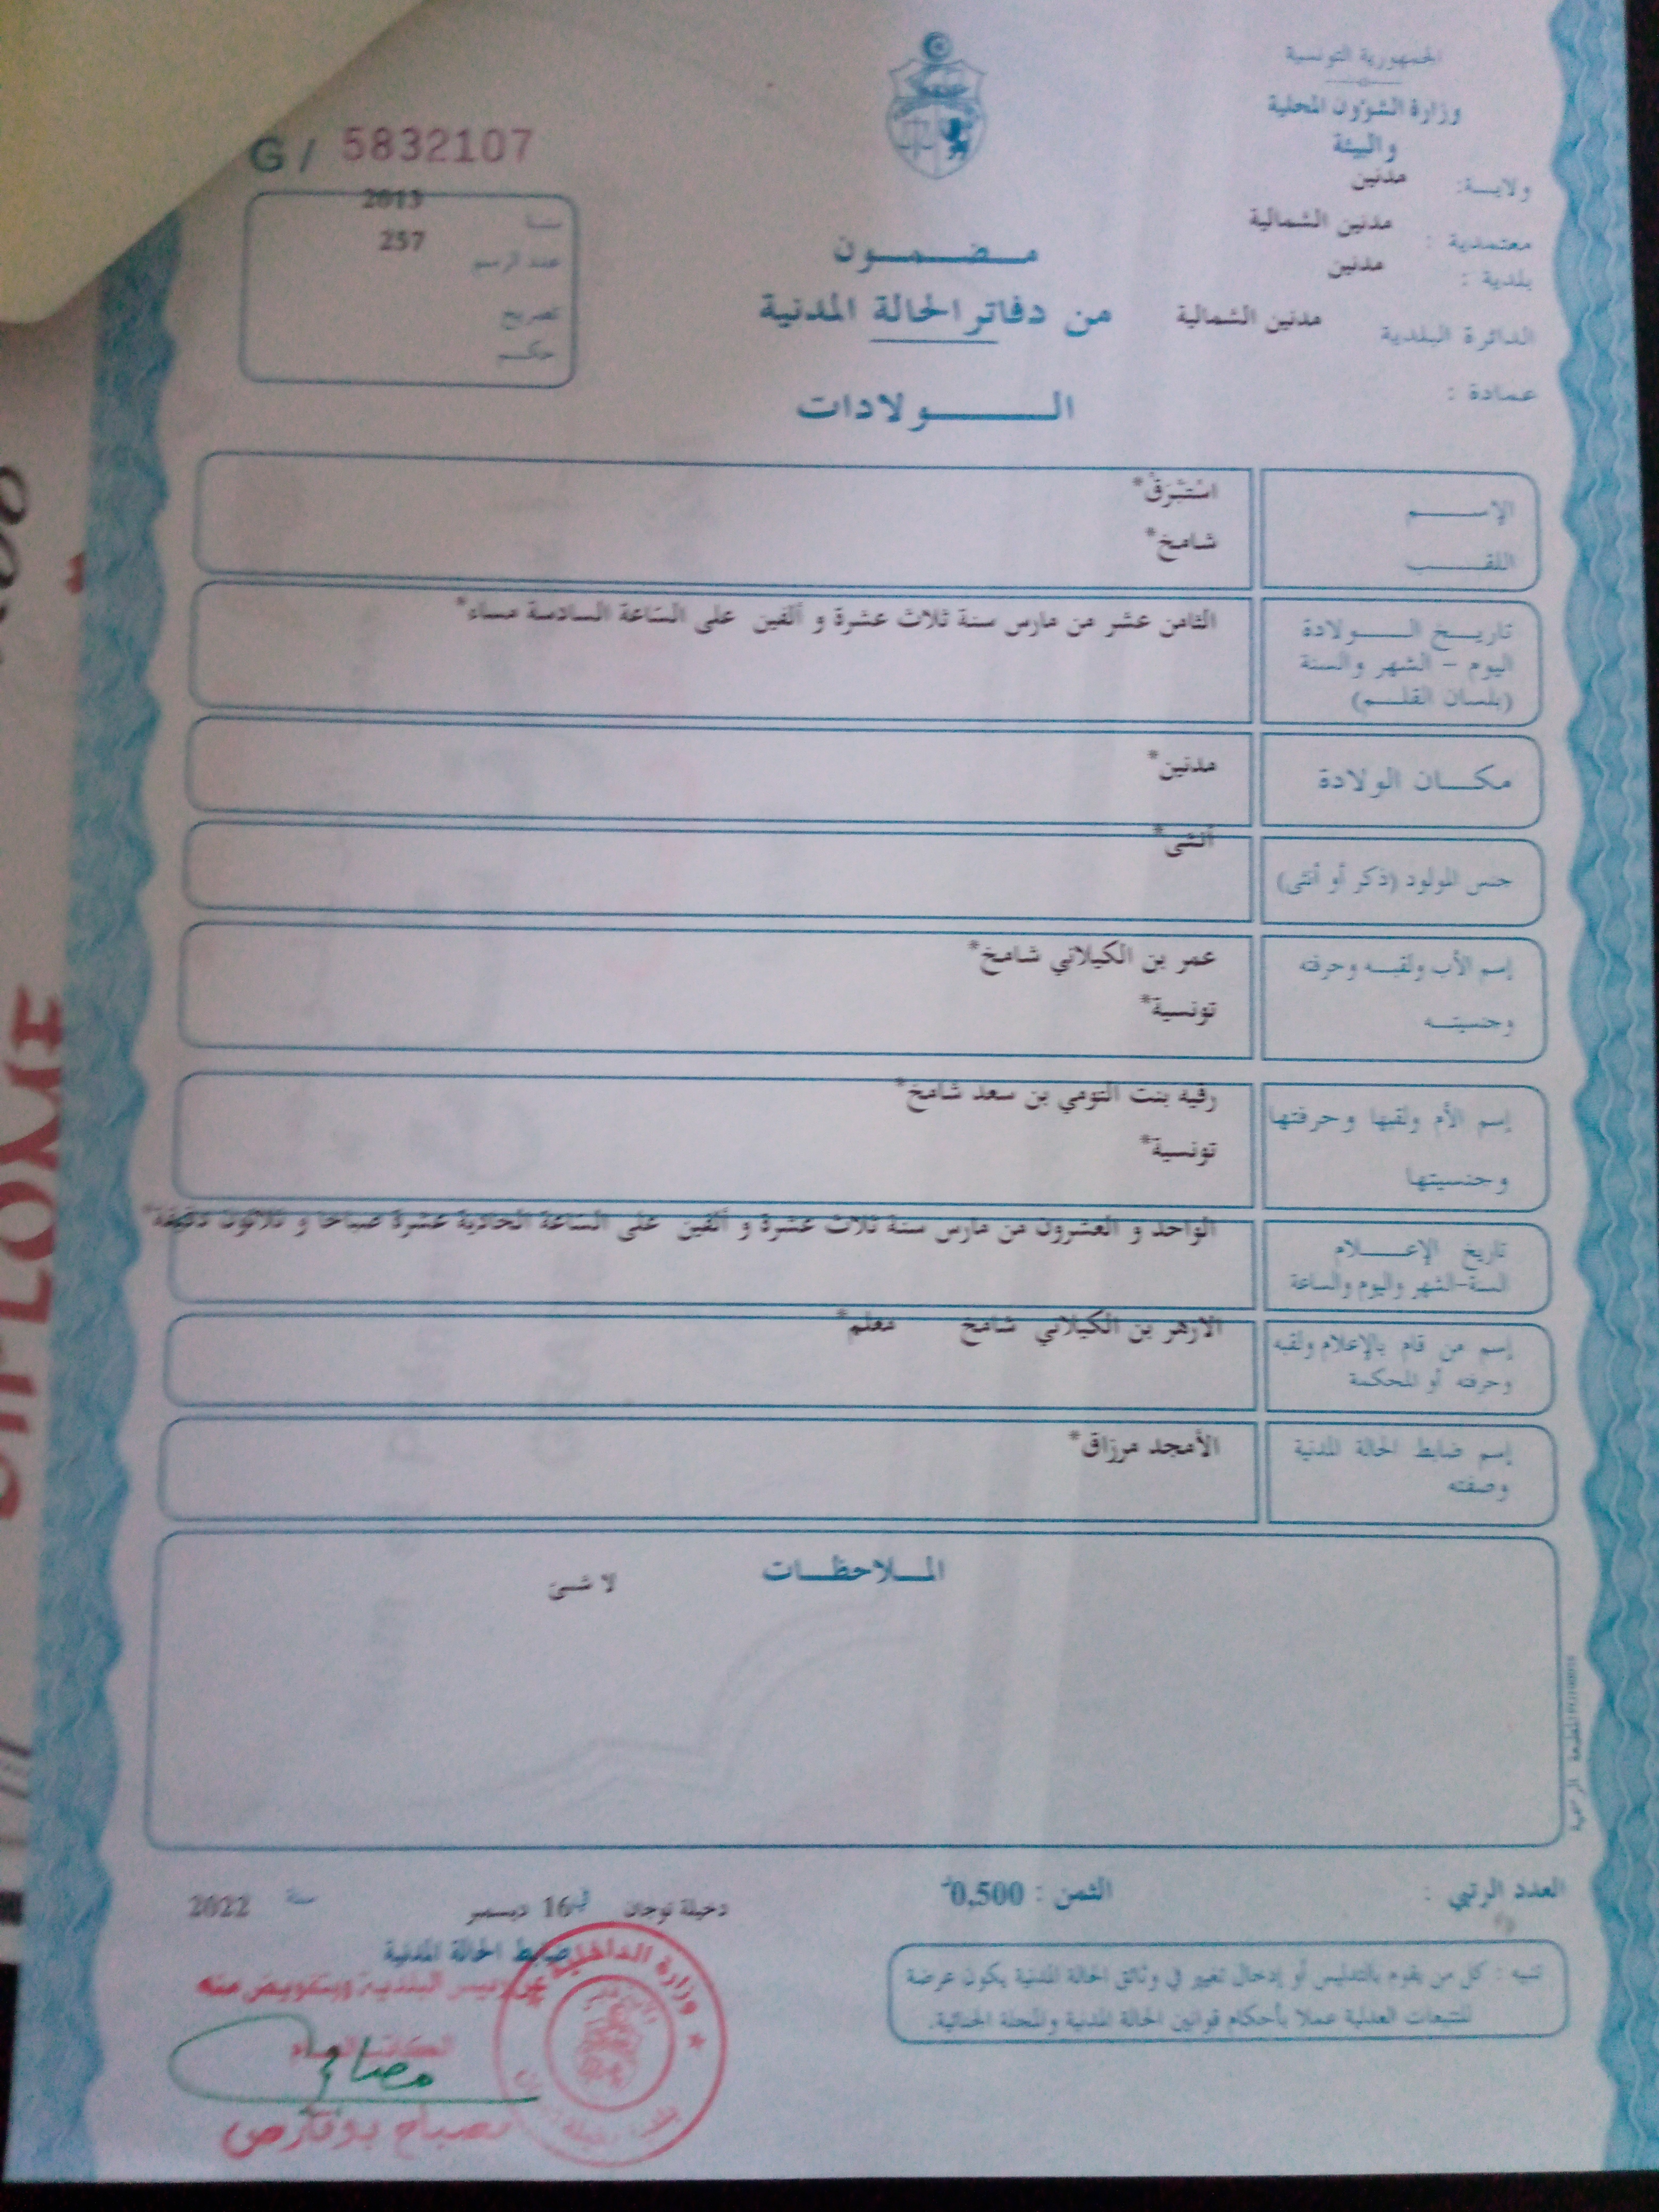 الجمهورية التونسية
وزارة الشؤون المحلية
والبيئة
ولايـــة: مدنين
معتمدية : مدنين الشمالية
بلدية : مدنين
الدائرة البلدية مدنين الشمالية
عمادة :
G / 5832107
سنة 2013
عدد الرسم 257
تصريح
حكــم
مــضــمــون
من دفاتر الحالة المدنية
الــولادات
الإســـم اسْتَبْرَقْ*
اللقــب شامخ*
تاريــخ الــولادة
اليوم – الشهر والسنة
(بلسان القلــم)
الثامن عشر من مارس سنة ثلاث عشرة و ألفين على الساعة السادسة مساء*
مكــان الولادة مدنين*
جنس المولود (ذكر أو أنثى) أنثى*
إسم الأب ولقبــه وحرفته عمر بن الكيلاني شامخ*
وجنسيتــه تونسية*
إسم الأم ولقبها وحرفتها رقية بنت التومي بن سعد شامخ*
وجنسيتها تونسية*
تاريخ الإعــلام
السنة-الشهر واليوم والساعة
الواحد و العشرون من مارس سنة ثلاث عشرة و ألفين على الساعة الحادية عشرة صباحا و ثلاثون دقيقة*
إسم من قام بالإعلام ولقبه
وحرفته أو المحكمة
الازهر بن الكيلاني شامخ معلم*
إسم ضابط الحالة المدنية
وصفته
الأمجد مرزاق*
المــلاحظــات
لا شئ
العدد الرتبي :
الثمن : 0,500
دخيلة توجان في 16 ديسمبر سنة 2022
ضابط الحالة المدنية
عن رئيس البلدية وبتفويض منه
الكاتب العام
وزارة الداخلية
تنبيه : كل من يقوم بالتدليس أو إدخال تغيير في وثائق الحالة المدنية يكون عرضة
للتتبعات العدلية عملا بأحكام قوانين الحالة المدنية والمجلة الجنائية.
المطبعة الرسمية